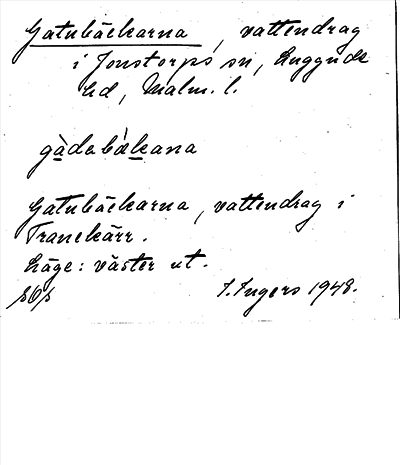 Gatubäckarna, vattendrag
i Jonstorps sn, Luggude
hd, Malm. l.
gàdabæ̀kana
Gatubäckarna, vattendrag i
Tranekärr.
Läge: väster ut.
I. Ingers 1948.